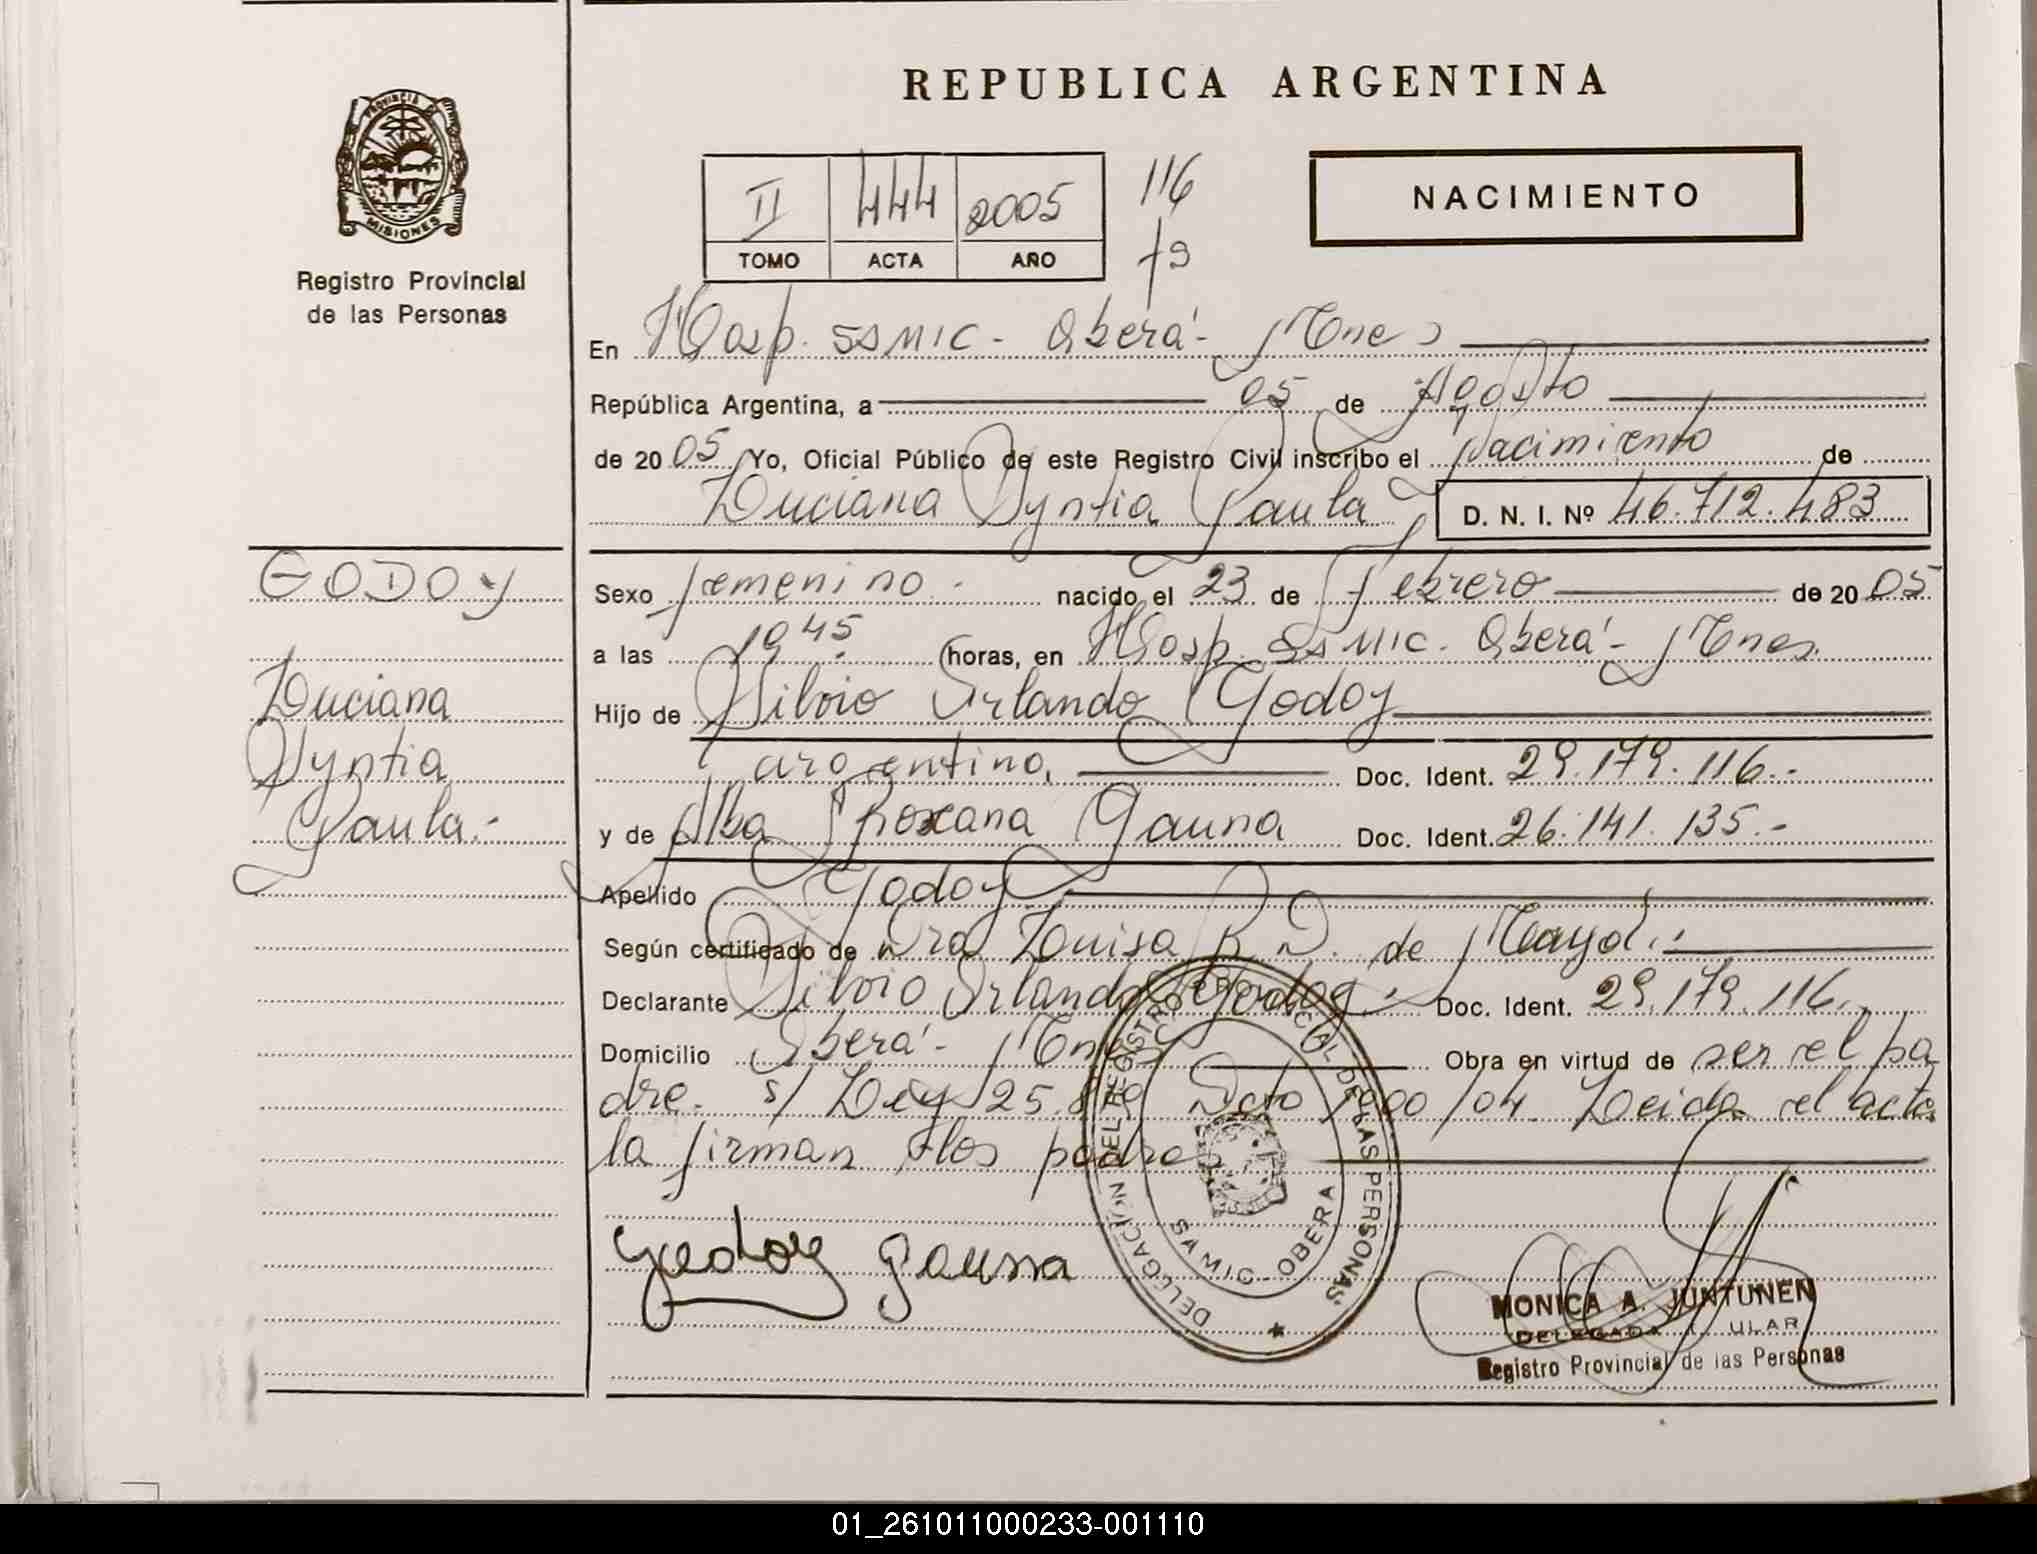 PROVINCIA DE
MISIONES
Registro Provincial
de las Personas
REPUBLICA ARGENTINA
II 444 2005 116
TOMO ACTA AÑO
NACIMIENTO
En Hosp. SAMIC - Oberá - Mnes
República Argentina, a 05 de Agosto
de 20 05 Yo, Oficial Público de este Registro Civil inscribo el Nacimiento de
Luciana Syntia Paula D. N. I. Nº 46.712.483
GODOY
Luciana
Syntia
Paula.-
Sexo femenino.- nacido el 23 de Febrero de 20 05
a las 19 45 horas, en Hosp. SAMIC. Oberá - Mnes.
Hijo de Silvio Orlando Godoy
argentino, Doc. Ident. 29.179.116.-
y de Alba Roxana Gauna Doc. Ident. 26.141.135.-
Apellido Godoy
Según certificado de Dra Luisa R. D. de Mayol.:
Declarante Silvio Orlando Godoy. Doc. Ident. 29.179.116.
Domicilio Oberá - Mnes Obra en virtud de ser el pa
dre. s/ Ley 25. Dcto 1900/04 Leida el acta
la firman los padres
Godoy Gauna
DELEGACION DEL REGISTRO PROVINCIAL DE LAS PERSONAS
SAMIC - OBERA
MONICA A. JUNTUNEN
DELEGADA
Registro Provincial de las Personas
01_261011000233-001110